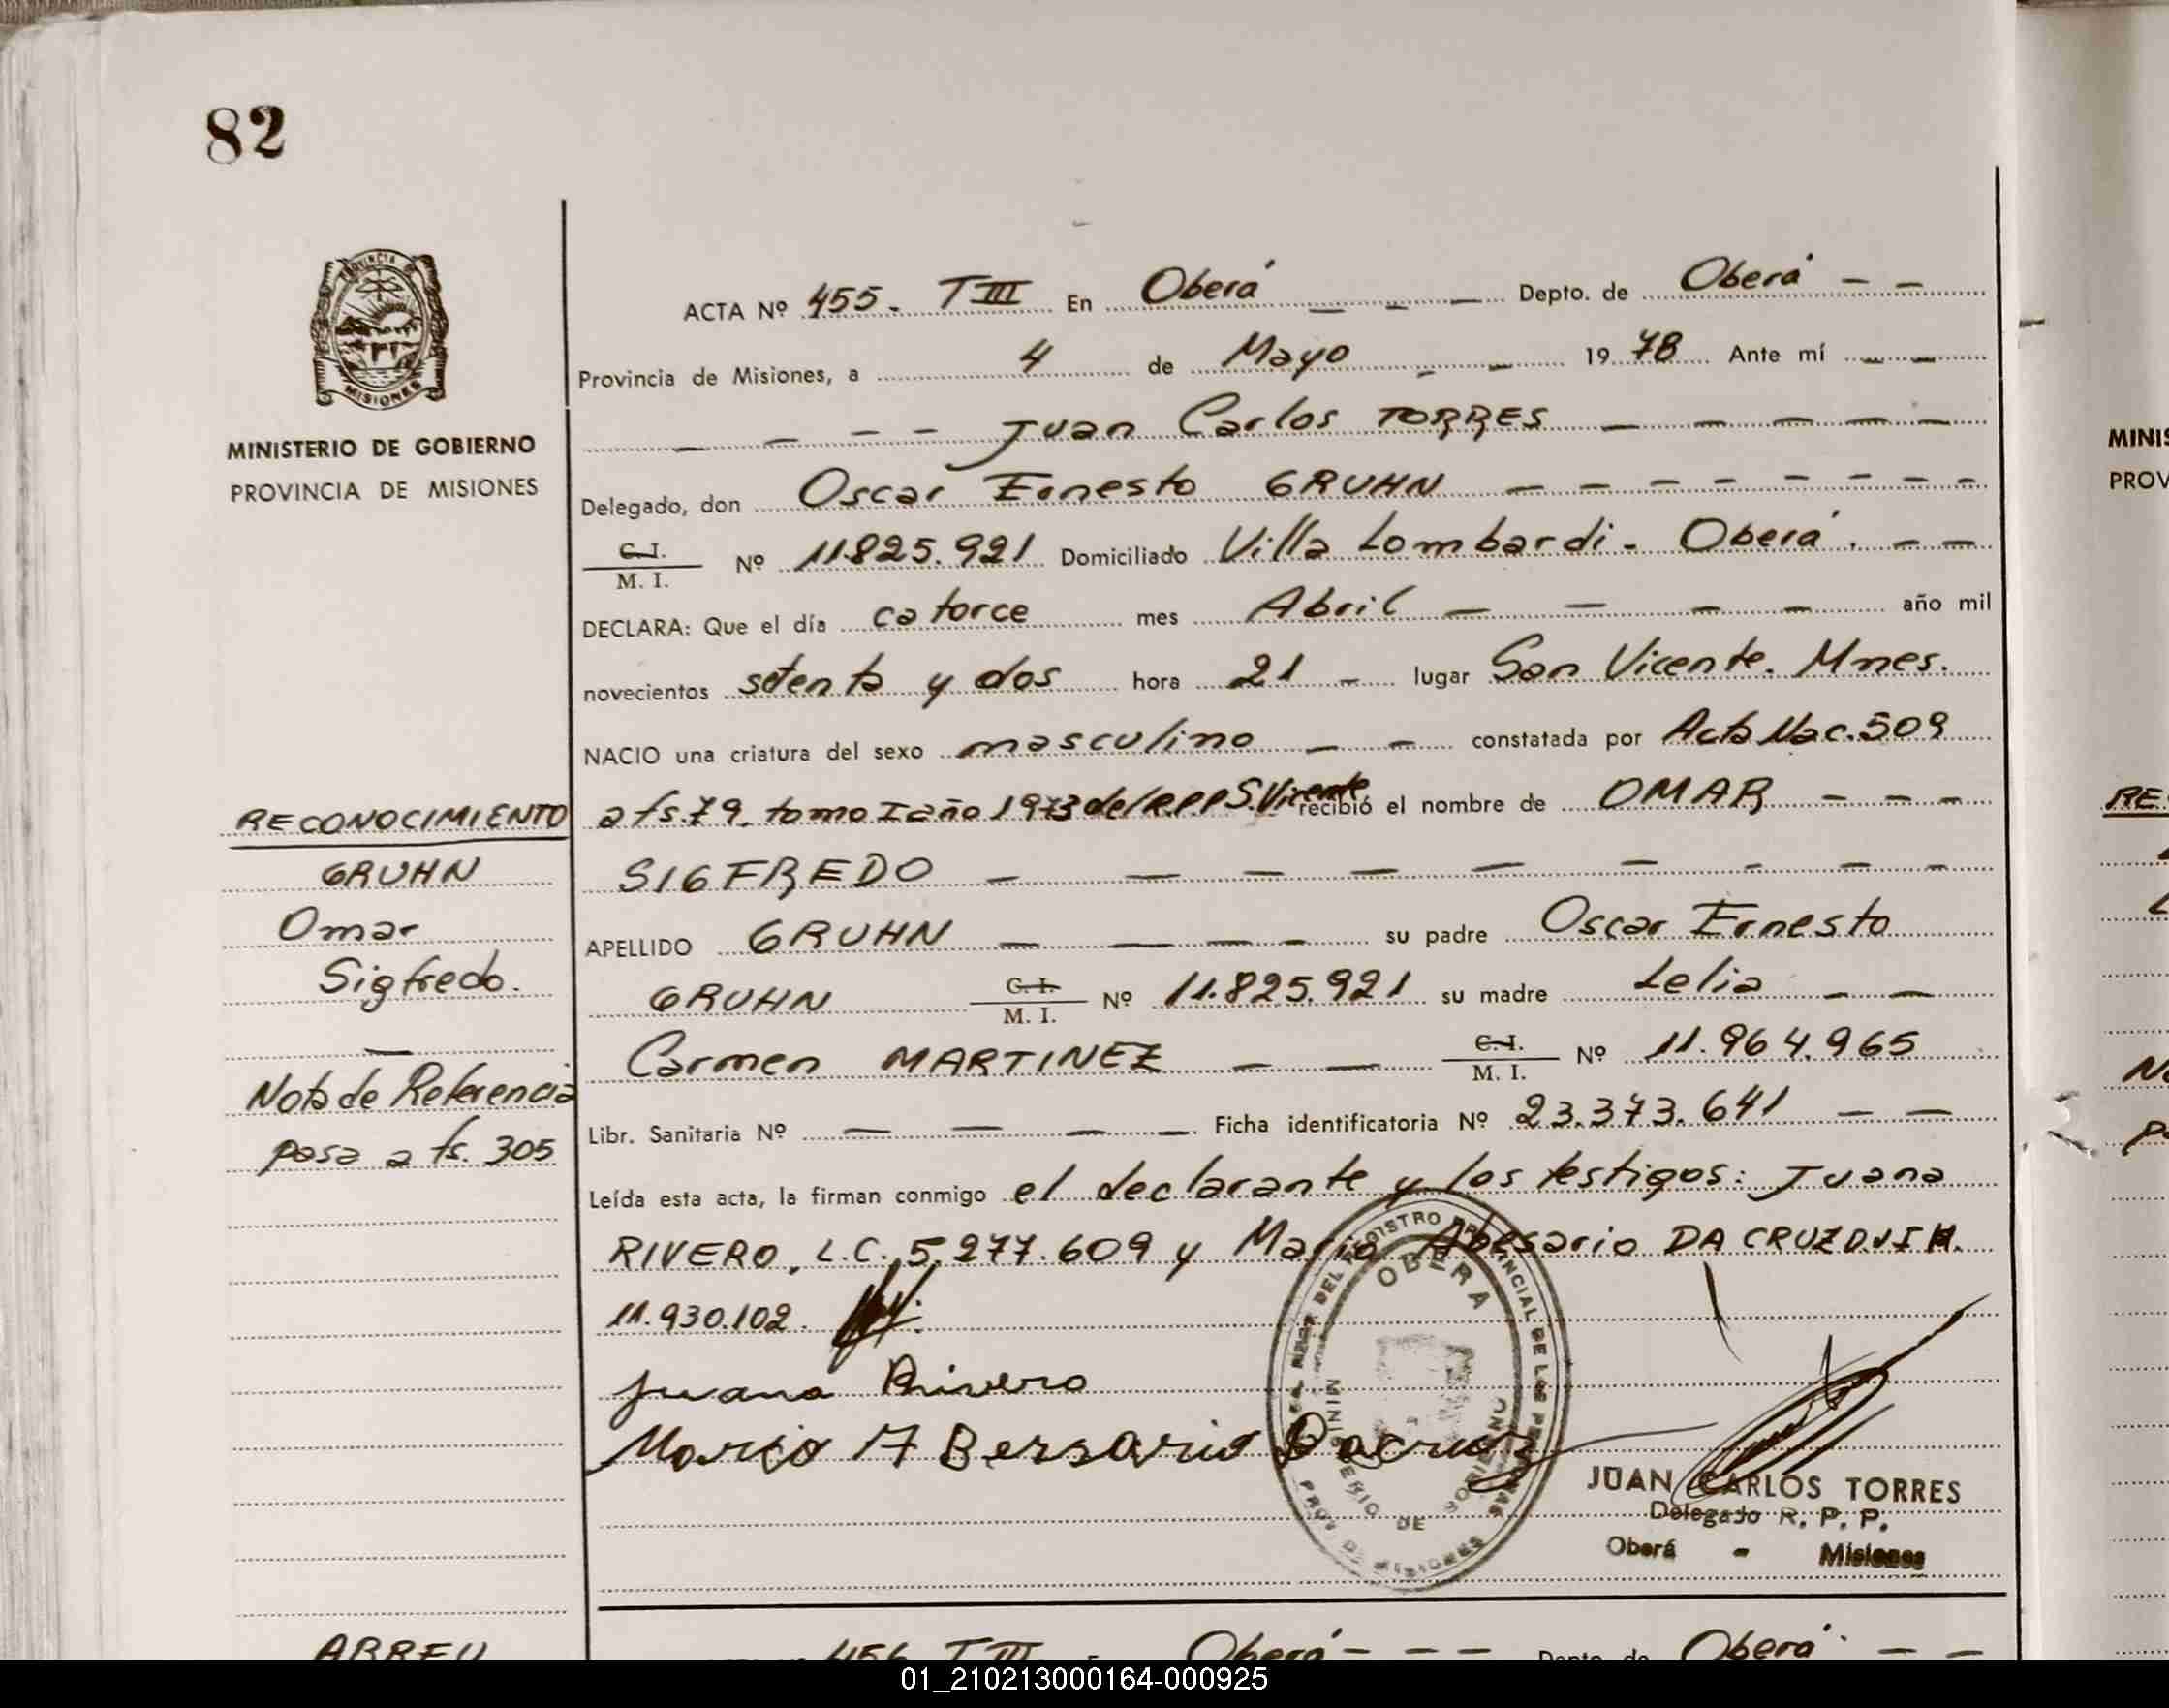 82
PROVINCIA DE
MISIONES
MINISTERIO DE GOBIERNO
PROVINCIA DE MISIONES
ACTA Nº 455. T III En Oberá Depto. de Oberá
Provincia de Misiones, a 4 de Mayo 1978 Ante mí
Juan Carlos TORRES
Delegado, don Oscar Ernesto GRUHN
C. I.
M. I. Nº 11.825.921 Domiciliado Villa Lombardi - Oberá.
DECLARA: Que el día catorce mes Abril año mil
novecientos setenta y dos hora 21 lugar San Vicente. Mnes.
NACIO una criatura del sexo masculino constatada por Acta Nac. 509
a fs. 79. tomo I año 1973 del R.P.P S. Vicente recibió el nombre de OMAR
SIGFREDO
APELLIDO GRUHN su padre Oscar Ernesto
GRUHN C. I.
M. I. Nº 11.825.921 su madre Lelia
Carmen MARTINEZ C. I.
M. I. Nº 11.964.965
Libr. Sanitaria Nº Ficha identificatoria Nº 23.373.641
Leída esta acta, la firman conmigo el declarante y los testigos: Juana
RIVERO, L.C. 5.277.609 y Mario DA CRUZ D.N.I.
11.930.102.
RECONOCIMIENTO
GRUHN
Omar
Sigfredo.
Nota de Referencia
pasa a fs. 305
Juana Rivero
Mario A Bersario Dacruz
REGISTRO PROVINCIAL DE LAS PERSONAS
OBERA
MINISTERIO DE GOBIERNO
PROV. DE MISIONES
JUAN CARLOS TORRES
Delegado R. P. P.
Oberá - Misiones
ABREU
456 T III Oberá Depto. de Oberá
MINIS
PROV
RE
01_210213000164-000925